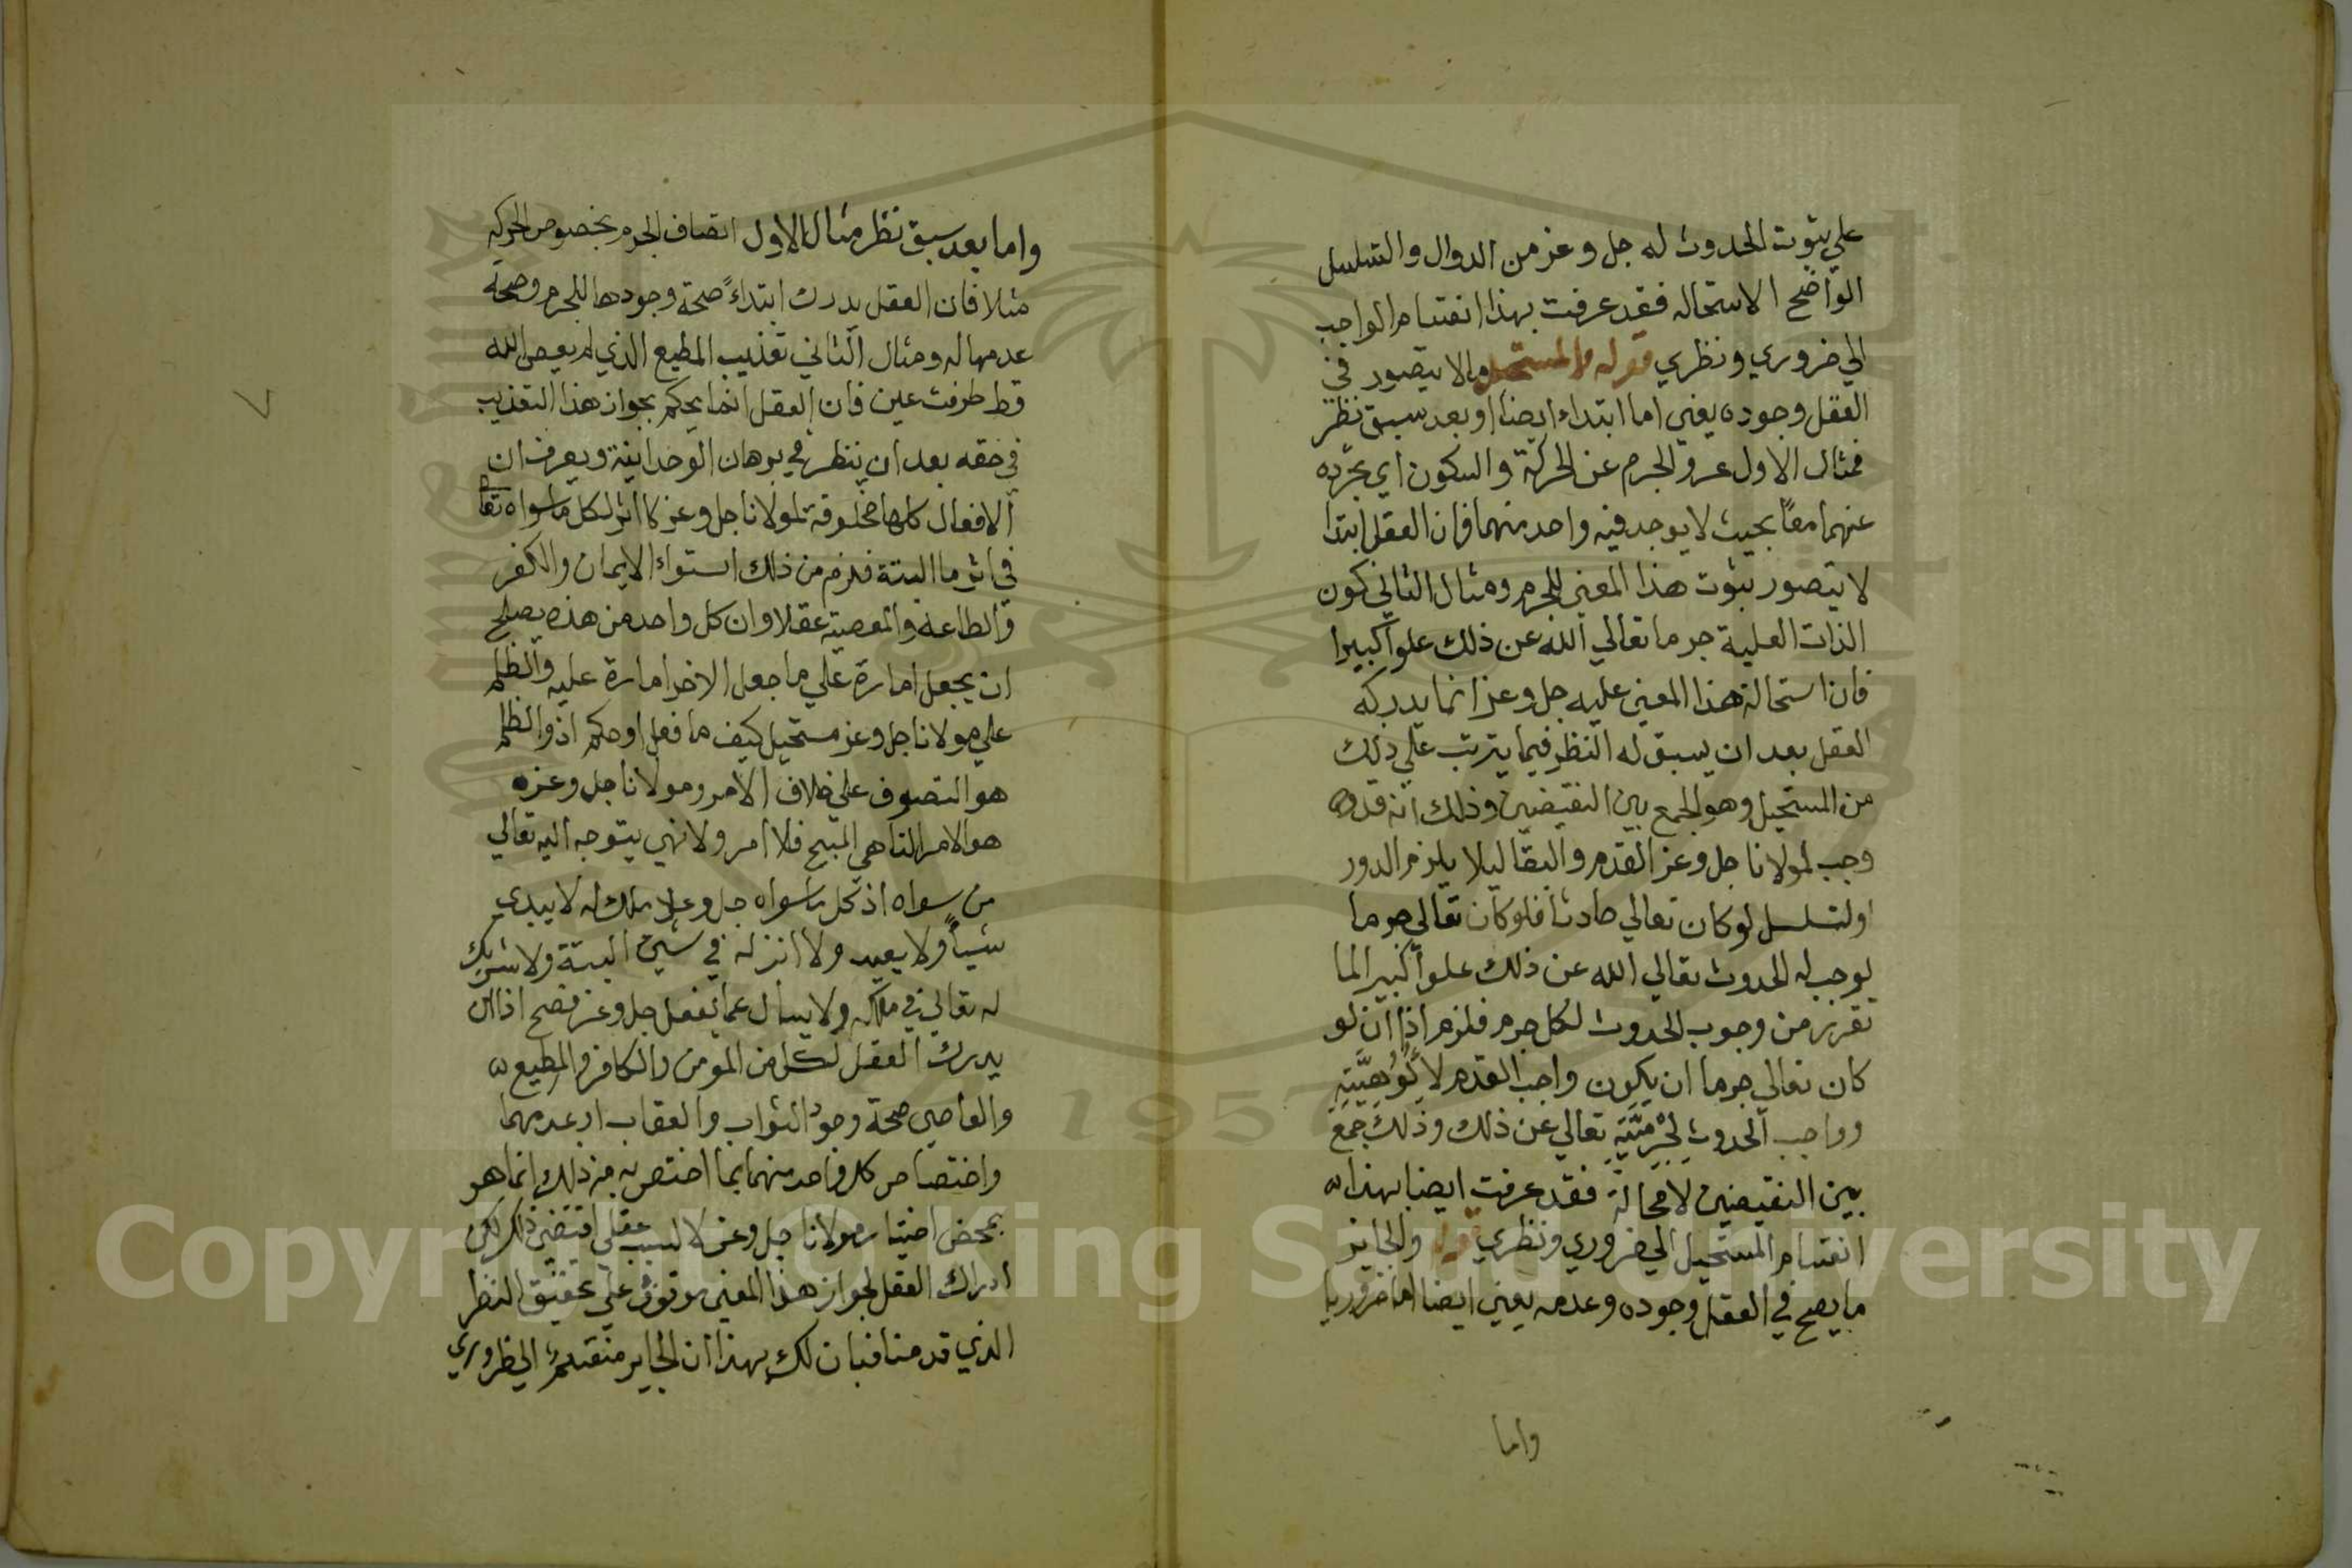 علي ثبوت الحدوث له جل وعز من الدوال والتسلسل
الواضح الاستحاله فقد عرفت بهذا انقسام الواجب
الي ضروري ونظري قوله والمستحيل ما لا يتصور في
العقل وجوده يعني اما ابتداء ايضا او بعد سبق نظر
فمثال الاول عرو الجرم عن الحركة والسكون اي تجرده
عنهما معًا بحيث لا يوجد فيه واحد منهما فان العقل ابتدا
لا يتصور ثبوت هذا المعني للجرم ومثال الثاني كون
الذات العلية جرما تعالي الله عن ذلك علوا كبيرا
فان استحالة هذا المعني عليه جل وعز انما يدركه
العقل بعد ان يسبق له النظر فيما يترتب علي ذلك
من المستحيل وهو الجمع بين النقيضين وذلك انه قد
وجب لمولانا جل وعز القدم والبقا ليلا يلزم الدور
اولتسلسل لو كان تعالي حادثا فلو كان تعالي جرما
لوجب له الحدوث تعالي الله عن ذلك علوا كبيرا لما
تقرر من وجوب الحدوث لكل جرم فلزم اذا ان لو
كان تعالي جرما ان يكون واجب القدم لِأُلُوهِيَّتِهِ
وواجب الحدوث لِجِرْمِيَّتِهِ تعالي عن ذلك وذلك جمع
بين النقيضين لا محالة فقد عرفت ايضا بهذا
انقسام المستحيل الي ضروري ونظري قوله والجايز
ما يصح في العقل وجوده وعدمه يعني ايضا اما ضروريا
واما
واما بعد سبق نظر مثال الاول اتصاف الجرم بخصوص الحركه
مثلا فان العقل يدرك ابتداءً صحة وجودها للجرم وصحة
عدمها له ومثال الثاني تعذيب المطيع الذي لم يعص الله
قط طرفت عين فان العقل انما يحكم بجواز هذا التعذيب
في حقه بعد ان ينظر في برهان الوحدانية ويعرف ان
الافعال كلها مخلوقة لمولانا جل وعز لا اثر لكل ما سواه تعا
في اثر ما البتة فلزم من ذلك استواء الايمان والكفر
والطاعة والمعصية عقلا وان كل واحد من هذه يصلح
ان يجعل امارة علي ما جعل الاخر امارة عليه والظلم
علي مولانا جل وعز مستحيل كيف ما فعل او حكم اذ والظلم
هو التصرف علي خلاف الامر ومولانا جل وعز
هو الامر الناهي المبيح فلا امر ولا نهي يتوجه اليه تعالي
من سواه اذ كل ما سواه جل وعلا ملك له لا يبدي
شياً ولا يعيد ولا اثر له في شيئ البتة ولا شريك
له تعالي في ملكه ولا يسال عما يفعل جل وعز فصح اذا ان
يدرك العقل لكل من المومن والكافر والمطيع
والعاصي صحة وجود الثواب والعقاب او عدمهما
واختصاص كل واحد منهما بما اختص به من ذلك انما هو
بمحض اختيار مولانا جل وعز لا لسبب عقلي اقتضي ذلك لكن
ادراك العقل لجواز هذا المعني موقوف علي تحقيق النظر
الذي قدمنا فبان لك بهذا ان الجايز منقسم الي ظروري
٧
Copyright © King Saud University
1957